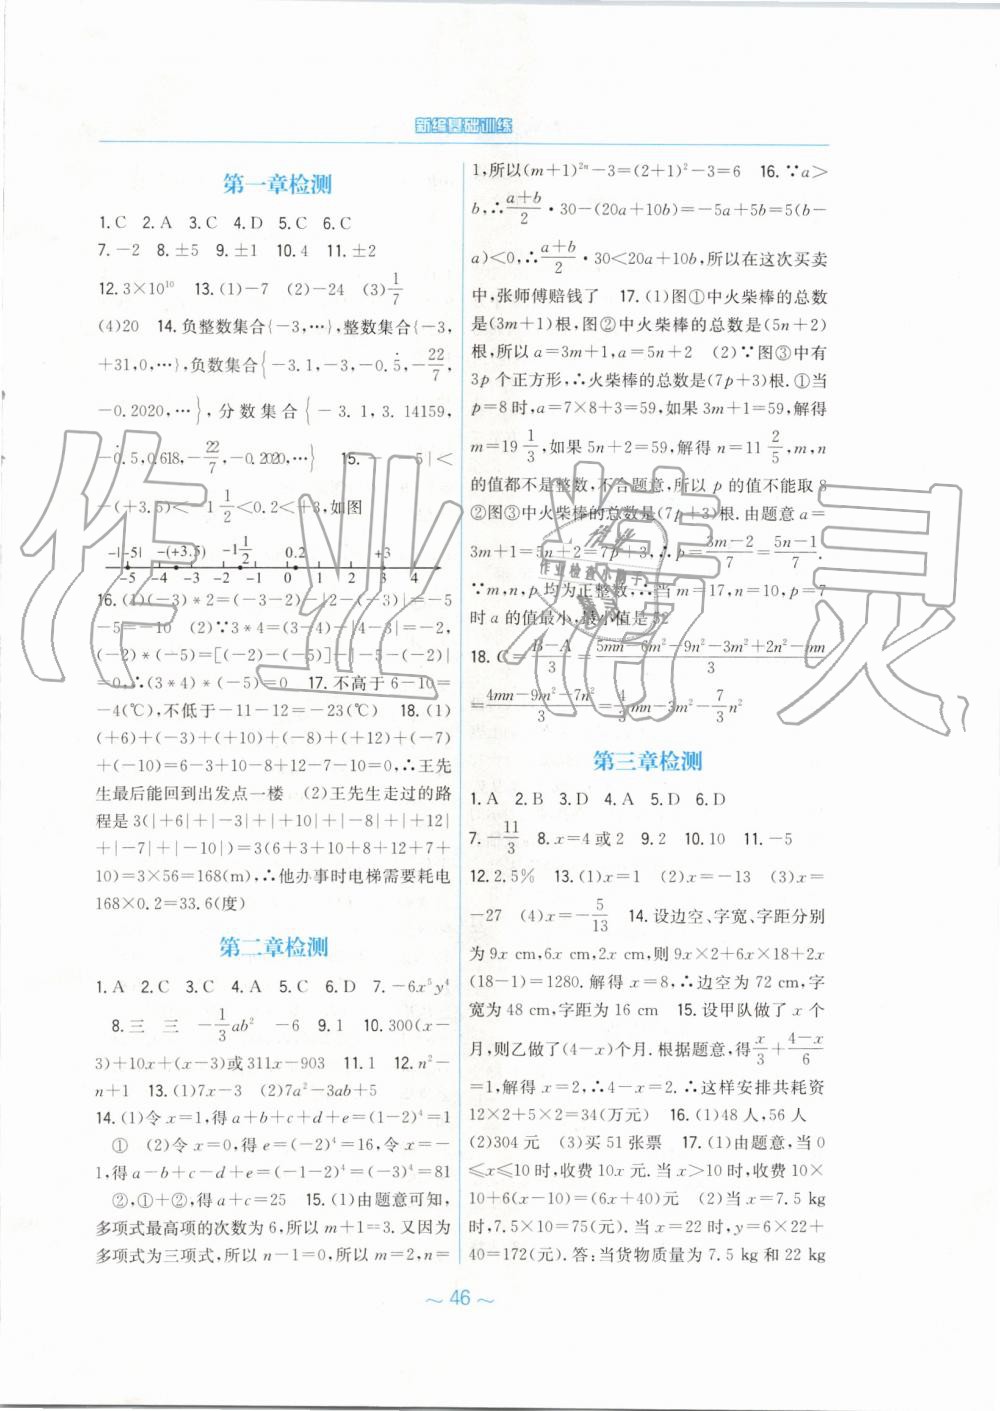 新编基础训练
第一章检测
1.C 2.A 3.C 4.D 5.C 6.C
7.-2 8.±5 9.±1 10.4 11.±2
12.3×10¹⁰ 13.(1)-7 (2)-24 (3)1/7
(4)20 14.负整数集合{-3,…},整数集合{-3,
+31,0,…},负数集合{-3.1,-3,-0.5̇,-22/7,
-0.2020,…},分数集合{-3.1,3.14159,
-0.5,0.618,-22/7,-0.2020,…} 15.-|-5|<
-(+3.5)<-1 1/2<0.2<+3,如图
-|-5| -(+3.5) -1 1/2 0.2 +3
-5 -4 -3 -2 -1 0 1 2 3 4
16.(1)(-3)*2=(-3-2)-|2-(-3)|=-5
-5=-10 (2)∵3*4=(3-4)-|4-3|=-2,
(-2)*(-5)=[(-2)-(-5)]-|-5-(-2)|
=0,∴(3*4)*(-5)=0 17.不高于6-10=
-4(℃),不低于-11-12=-23(℃) 18.(1)
(+6)+(-3)+(+10)+(-8)+(+12)+(-7)
+(-10)=6-3+10-8+12-7-10=0,∴王先
生最后能回到出发点一楼 (2)王先生走过的路
程是3(|+6|+|-3|+|+10|+|-8|+|+12|
+|-7|+|-10|)=3(6+3+10+8+12+7+
10)=3×56=168(m),∴他办事时电梯需要耗电
168×0.2=33.6(度)
第二章检测
1.A 2.C 3.C 4.A 5.C 6.D 7.-6x⁵y⁴
8.三 三 -1/3ab² -6 9.1 10.300(x-
3)+10x+(x-3)或311x-903 11.1 12.n²-
n+1 13.(1)7x-3 (2)7a²-3ab+5
14.(1)令x=1,得a+b+c+d+e=(1-2)⁴=1
① (2)令x=0,得e=(-2)⁴=16,令x=-
1,得a-b+c-d+e=(-1-2)⁴=(-3)⁴=81
②,①+②,得a+c=25 15.(1)由题意可知,
多项式最高项的次数为6,所以m+1=3.又因为
多项式为三项式,所以n-1=0,所以m=2,n=
1,所以(m+1)²ⁿ-3=(2+1)²-3=6 16.∵a>
b,∴(a+b)/2·30-(20a+10b)=-5a+5b=5(b-
a)<0,∴(a+b)/2·30<20a+10b,所以在这次买卖
中,张师傅赔钱了 17.(1)图①中火柴棒的总数
是(3m+1)根,图②中火柴棒的总数是(5n+2)
根,所以a=3m+1,a=5n+2 (2)∵图③中有
3p个正方形,∴火柴棒的总数是(7p+3)根.①当
p=8时,a=7×8+3=59,如果3m+1=59,解得
m=19 1/3,如果5n+2=59,解得n=11 2/5,m,n
的值都不是整数,不合题意,所以p的值不能取8
②图③中火柴棒的总数是(7p+3)根.由题意a=
3m+1=5n+2=7p+3,∴p=(3m-2)/7=(5n-1)/7.
∵m,n,p均为正整数,∴当m=17,n=10,p=7
时a的值最小,最小值是52
18.C=(B-A)/3=(5mn-6m²-9n²-3m²+2n²-mn)/3
=(4mn-9m²-7n²)/3=4/3mn-3m²-7/3n²
第三章检测
1.A 2.B 3.D 4.A 5.D 6.D
7.-11/3 8.x=4或2 9.2 10.10 11.-5
12.2.5% 13.(1)x=1 (2)x=-13 (3)x=
-27 (4)x=-5/13 14.设边空、字宽、字距分别
为9x cm,6x cm,2x cm,则9x×2+6x×18+2x
(18-1)=1280.解得x=8,∴边空为72 cm,字
宽为48 cm,字距为16 cm 15.设甲队做了x个
月,则乙做了(4-x)个月.根据题意,得x/3+(4-x)/6
=1,解得x=2,∴4-x=2.∴这样安排共耗资
12×2+5×2=34(万元) 16.(1)48人,56人
(2)304元 (3)买51张票 17.(1)由题意,当0
≤x≤10时,收费10x元.当x>10时,收费10×
10+6(x-10)=(6x+40)元 (2)当x=7.5 kg
时,7.5×10=75(元).当x=22时,y=6×22+
40=172(元).答:当货物质量为7.5 kg和22 kg
~46~
作业精灵